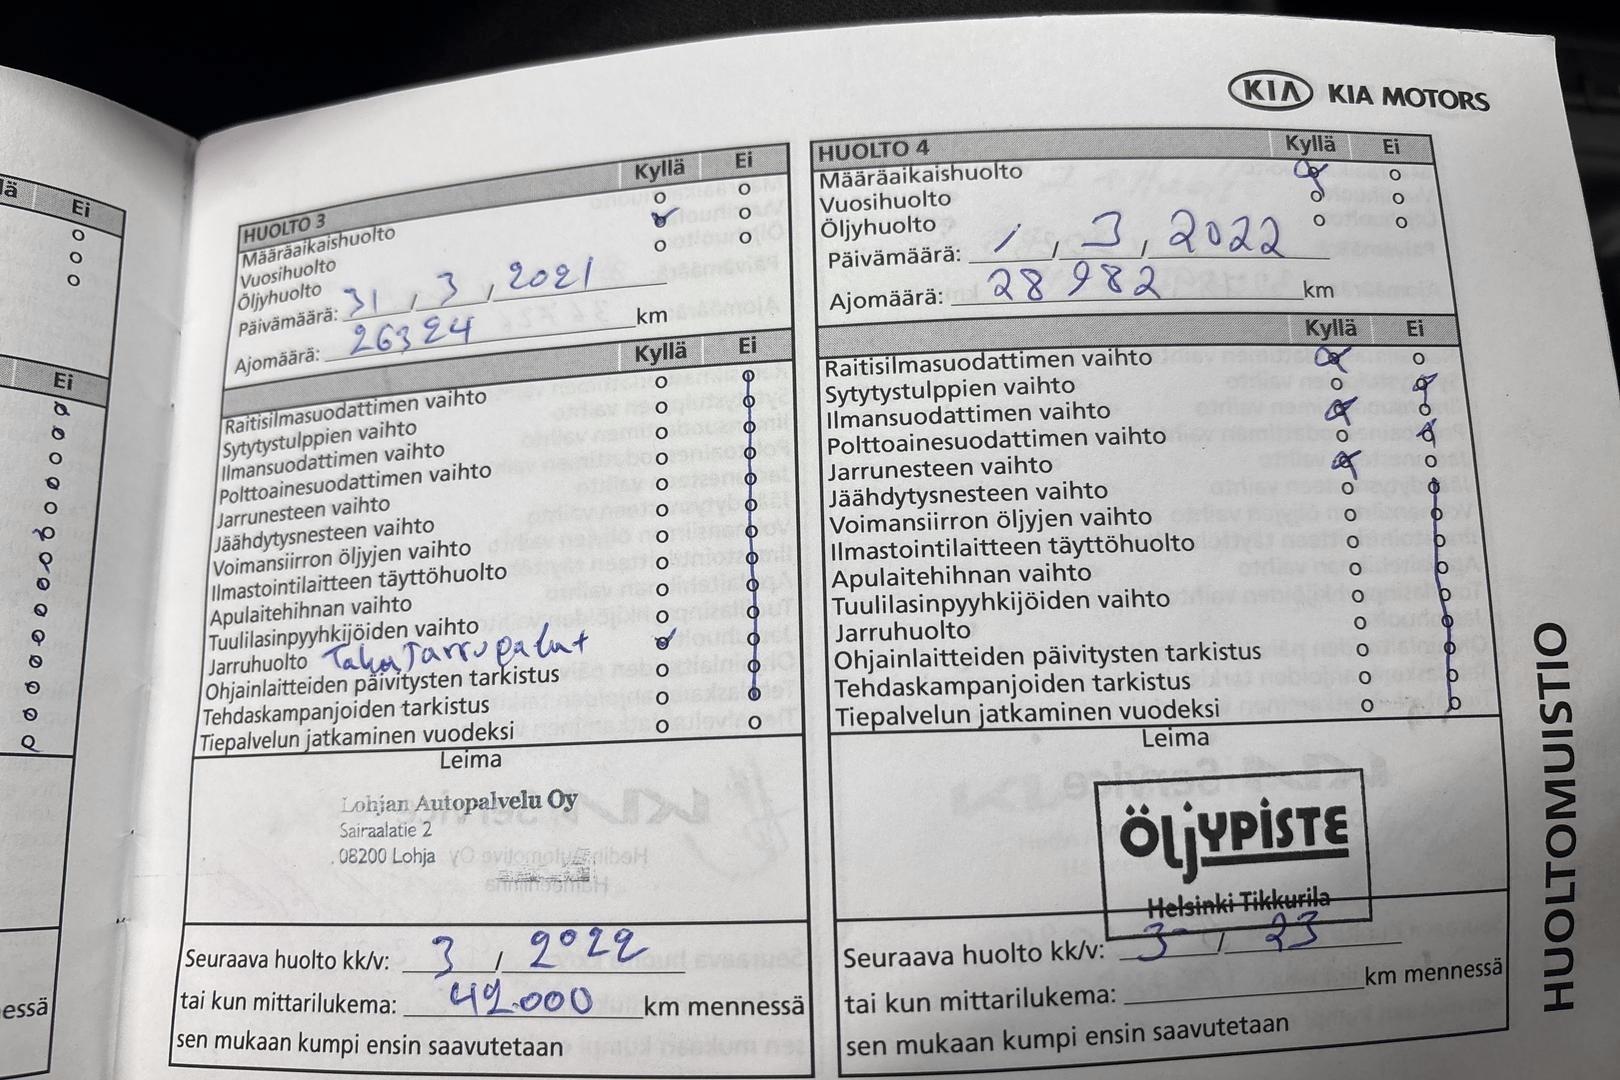 KIA KIA MOTORS
lä Ei
Ei
essä
HUOLTO 3 Kyllä Ei
Määräaikaishuolto
Vuosihuolto
Öljyhuolto
Päivämäärä: 31 / 3 / 2021
Ajomäärä: 26324 km
Kyllä Ei
Raitisilmasuodattimen vaihto
Sytytystulppien vaihto
Ilmansuodattimen vaihto
Polttoainesuodattimen vaihto
Jarrunesteen vaihto
Jäähdytysnesteen vaihto
Voimansiirron öljyjen vaihto
Ilmastointilaitteen täyttöhuolto
Apulaitehihnan vaihto
Tuulilasinpyyhkijöiden vaihto
Jarruhuolto TakaJarrupalat
Ohjainlaitteiden päivitysten tarkistus
Tehdaskampanjoiden tarkistus
Tiepalvelun jatkaminen vuodeksi
Leima
Lohjan Autopalvelu Oy
Sairaalatie 2
08200 Lohja
Seuraava huolto kk/v: 3 / 2022
tai kun mittarilukema: 42.000 km mennessä
sen mukaan kumpi ensin saavutetaan
HUOLTO 4 Kyllä Ei
Määräaikaishuolto
Vuosihuolto
Öljyhuolto
Päivämäärä: 1 / 3 / 2022
Ajomäärä: 28982 km
Kyllä Ei
Raitisilmasuodattimen vaihto
Sytytystulppien vaihto
Ilmansuodattimen vaihto
Polttoainesuodattimen vaihto
Jarrunesteen vaihto
Jäähdytysnesteen vaihto
Voimansiirron öljyjen vaihto
Ilmastointilaitteen täyttöhuolto
Apulaitehihnan vaihto
Tuulilasinpyyhkijöiden vaihto
Jarruhuolto
Ohjainlaitteiden päivitysten tarkistus
Tehdaskampanjoiden tarkistus
Tiepalvelun jatkaminen vuodeksi
Leima
ÖLJYPISTE
Helsinki Tikkurila
Seuraava huolto kk/v: 3 / 23
tai kun mittarilukema: km mennessä
sen mukaan kumpi ensin saavutetaan
HUOLTOMUISTIO